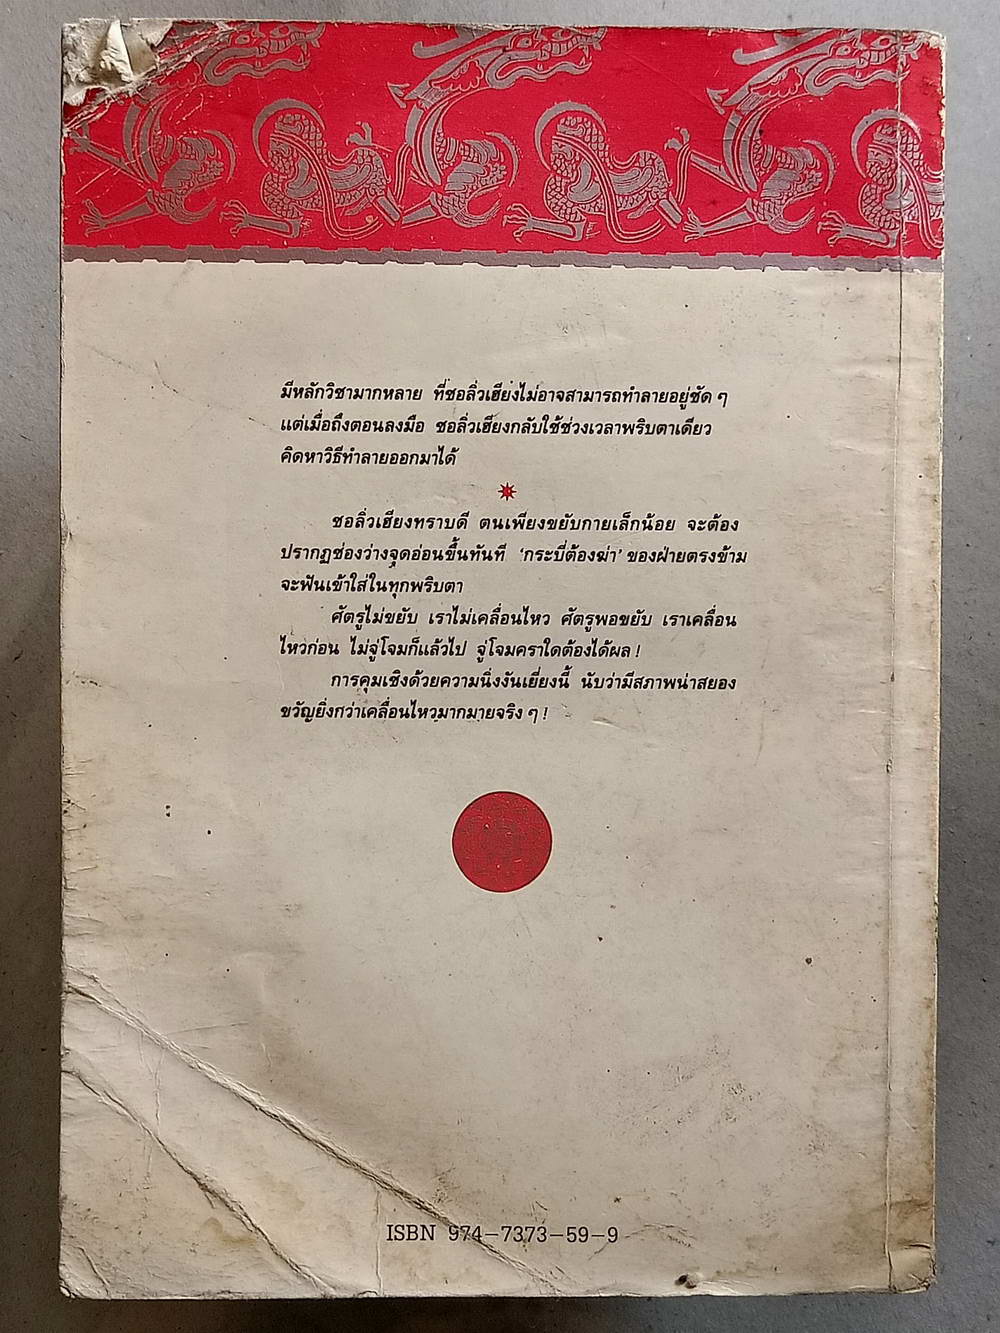 มีหลักวิชามากหลาย ที่ชอลิ่วเฮียงไม่อาจสามารถทำลายอยู่ชัด ๆ
แต่เมื่อถึงตอนลงมือ ชอลิ่วเฮียงกลับใช้ช่วงเวลาพริบตาเดียว
คิดหาวิธีทำลายออกมาได้
ชอลิ่วเฮียงทราบดี ตนเพียงขยับกายเล็กน้อย จะต้อง
ปรากฏช่องว่างจุดอ่อนขึ้นทันที ‘กระบี่ต้องฆ่า’ ของฝ่ายตรงข้าม
จะฟันเข้าใส่ในทุกพริบตา
ศัตรูไม่ขยับ เราไม่เคลื่อนไหว ศัตรูพอขยับ เราเคลื่อน
ไหวก่อน ไม่จู่โจมก็แล้วไป จู่โจมคราใดต้องได้ผล !
การคุมเชิงด้วยความนิ่งงันเยี่ยงนี้ นับว่ามีสภาพน่าสยอง
ขวัญยิ่งกว่าเคลื่อนไหวมากมายจริง ๆ !
ISBN 974-7373-59-9